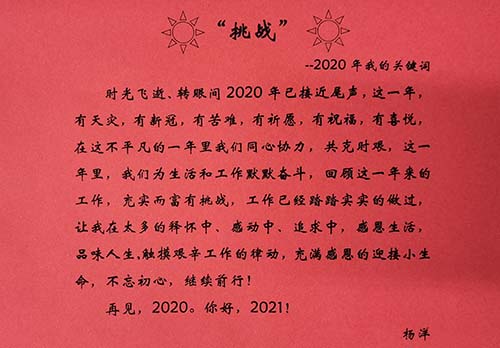 “挑战”
--2020 年我的关键词
时光飞逝、转眼间 2020 年已接近尾声，这一年，
有天灾，有新冠，有苦难，有祈愿，有祝福，有喜悦，
在这不平凡的一年里我们同心协力，共克时艰，这一
年里，我们为生活和工作默默奋斗，回顾这一年来的
工作，充实而富有挑战，工作已经踏踏实实的做过，
让我在太多的释怀中、感动中、追求中，感恩生活，
品味人生、触摸艰辛工作的律动，充满感恩的迎接小生
命，不忘初心，继续前行！
再见，2020。你好，2021！
杨洋